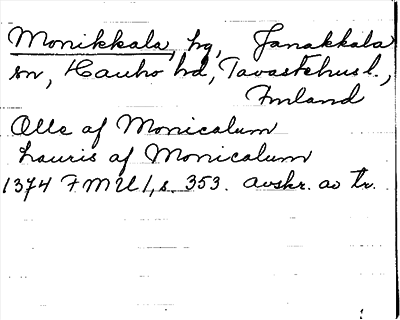 Monikkala, hg, Janakkala
sn, Hauho hd, Tavastehus l.,
Finland
Olle af Monicalum
Lauris af Monicalum
1374 FMU 1, s. 353. Avskr. av tr.